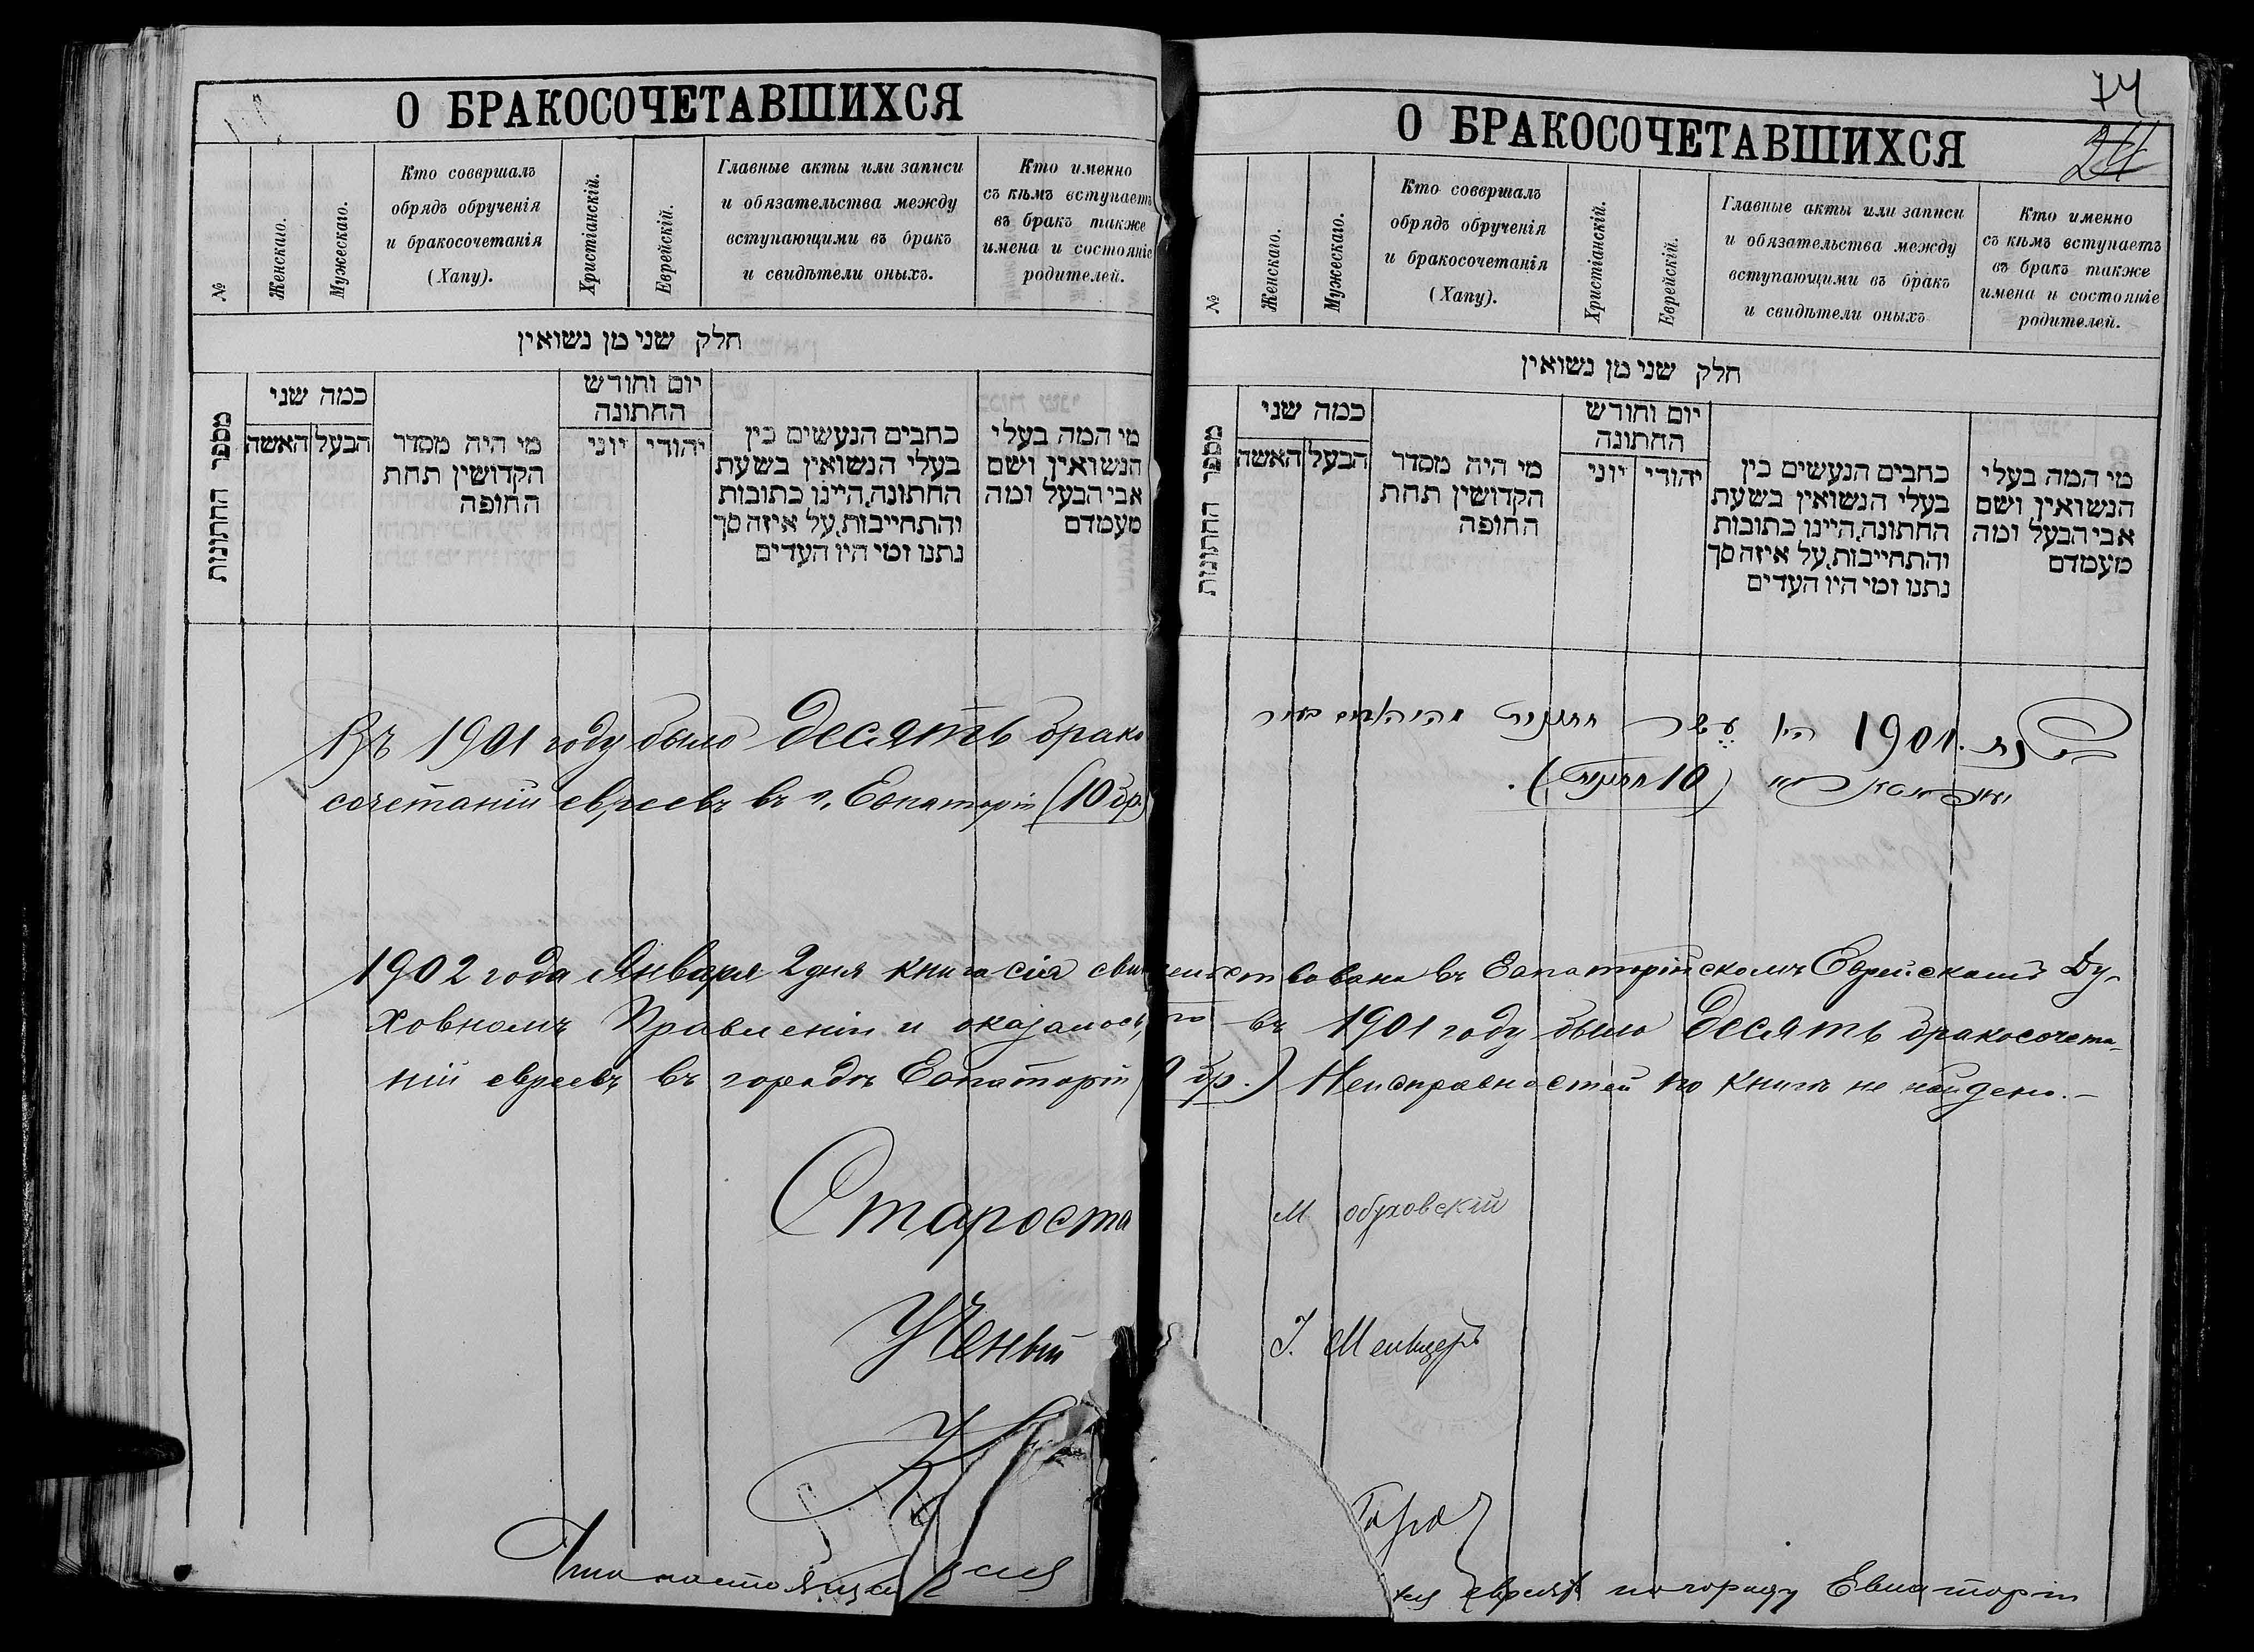 О БРАКОСОЧЕТАВШИХСЯ
№
Женскаго.
Мужескаго.
Кто совершалъ
обрядъ обрученія
и бракосочетанія
(Хапу).
Христіанскій.
Еврейскій.
Главные акты или записи
и обязательства между
вступающими въ бракъ
и свидѣтели оныхъ.
Кто именно
съ кѣмъ вступаетъ
въ бракъ также
имена и состояніе
родителей.
חלק שני מן נשואין
מספר החתונות
כמה שני
הבעל האשה
מי היה מסדר
הקדושין תחת
החופה
יום וחודש
החתונה
יהודי יוני
כתבים הנעשים בין
בעלי הנשואין בשעת
החתונה, היינו כתובות
והתחייבות, על איזה סך
נתנו ומי היו העדים
מי המה בעלי
הנשואין ושם
אבי הבעל ומה
מעמדם
Въ 1901 году было десять брако
сочетаній евреевъ въ г. Евпаторіи (10 бр.)
74
24
О БРАКОСОЧЕТАВШИХСЯ
№
Женскаго.
Мужескаго.
Кто совершалъ
обрядъ обрученія
и бракосочетанія
(Хапу).
Христіанскій.
Еврейскій.
Главные акты или записи
и обязательства между
вступающими въ бракъ
и свидѣтели оныхъ
Кто именно
съ кѣмъ вступаетъ
въ бракъ также
имена и состояніе
родителей.
חלק שני מן נשואין
מספר החתונות
כמה שני
הבעל האשה
מי היה מסדר
הקדושין תחת
החופה
יום וחודש
החתונה
יהודי יוני
כתבים הנעשים בין
בעלי הנשואין בשעת
החתונה, היינו כתובות
והתחייבות, על איזה סך
נתנו ומי היו העדים
מי המה בעלי
הנשואין ושם
אבי הבעל ומה
מעמדם
בשנת 1901 היו עשר חתונות מהיהודים בעיר
(10 חתונות).
1902 года Января 2 дня книга сія свидетельствована въ Евпаторійскомъ Еврейскомъ Ду-
ховномъ Правленіи и оказалось, что въ 1901 году было десять бракосочета-
ній евреевъ въ городѣ Евпаторіи (10 бр.) Неисправностей по книгѣ не найдено.-
Староста М Обуховскій
Ученый І. Мельцеръ
Что настоящая
евреяхъ по городу Евпаторіи